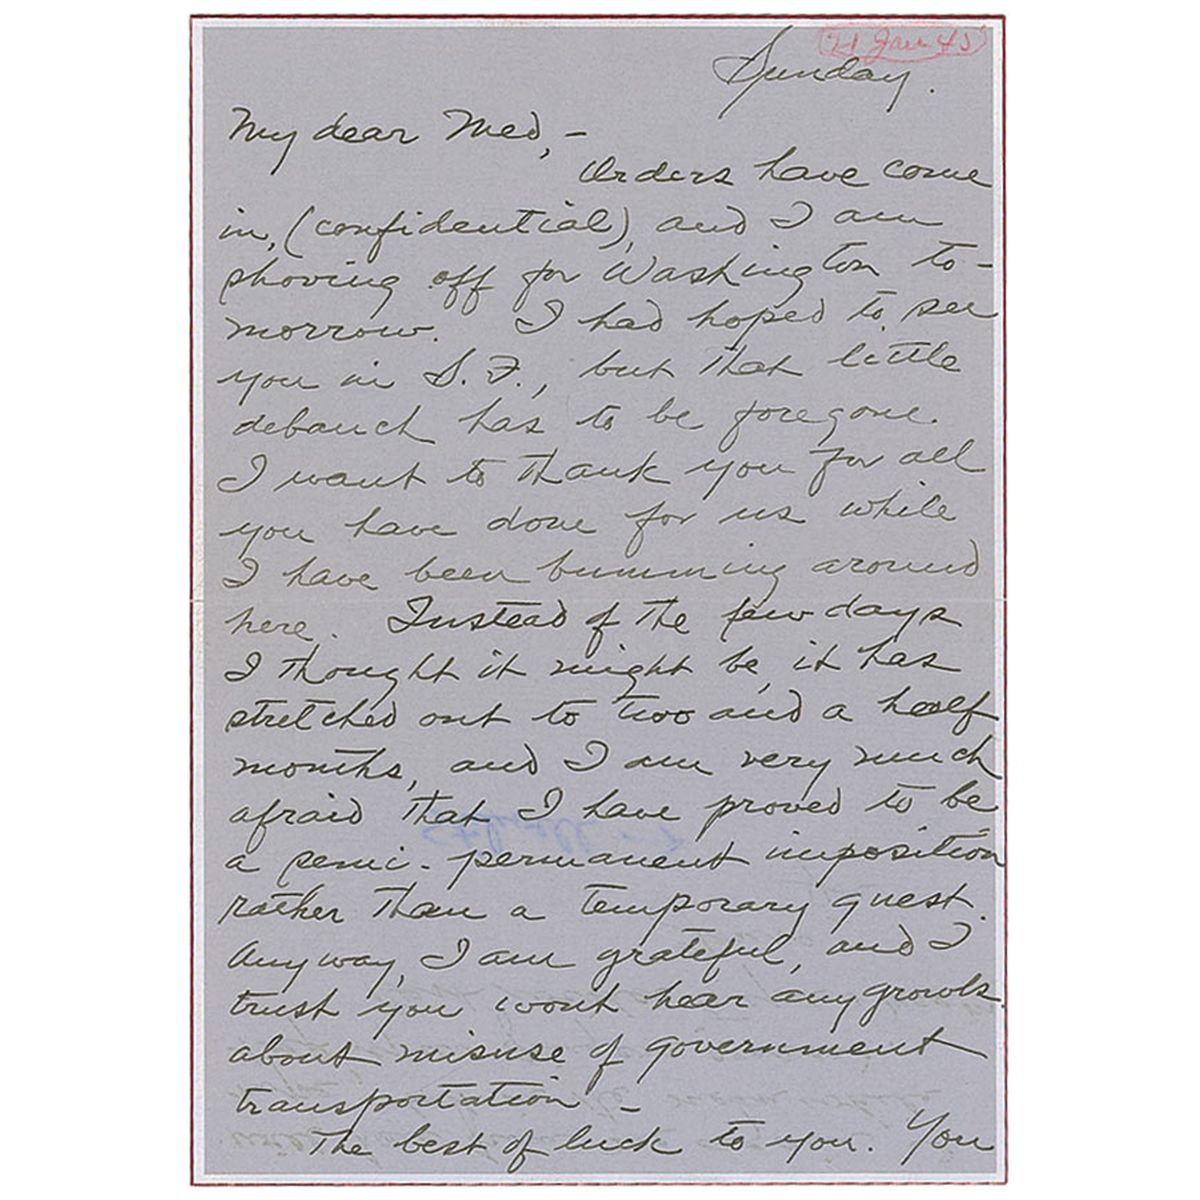 21 Jan 45
Sunday.
My dear Med,-
Orders have come
in, (confidential), and I am
shoving off for Washington to-
morrow. I had hoped to see
you in S.F., but that little
debauch has to be foregone.
I want to thank you for all
you have done for us while
I have been bumming around
here. Instead of the few days
I thought it might be, it has
stretched out to two and a half
months, and I am very much
afraid that I have proved to be
a semi-permanent imposition
rather than a temporary guest.
Anyway, I am grateful, and I
trust you wont hear any growls
about misuse of government
transportation -
The best of luck to you. You